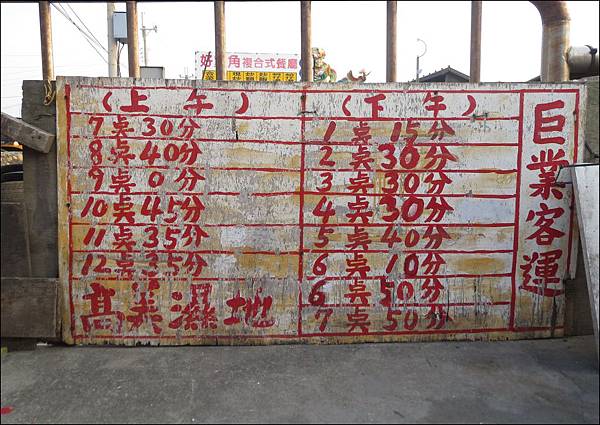 好 角複合式餐廳
(上午)
7点30分
8点40分
9点0分
10点45分
11点35分
12点35分
高美濕地
(下午)
1点15分
2点30分
3点30分
4点30分
5点40分
6点10分
6点50分
7点50分
巨業客運